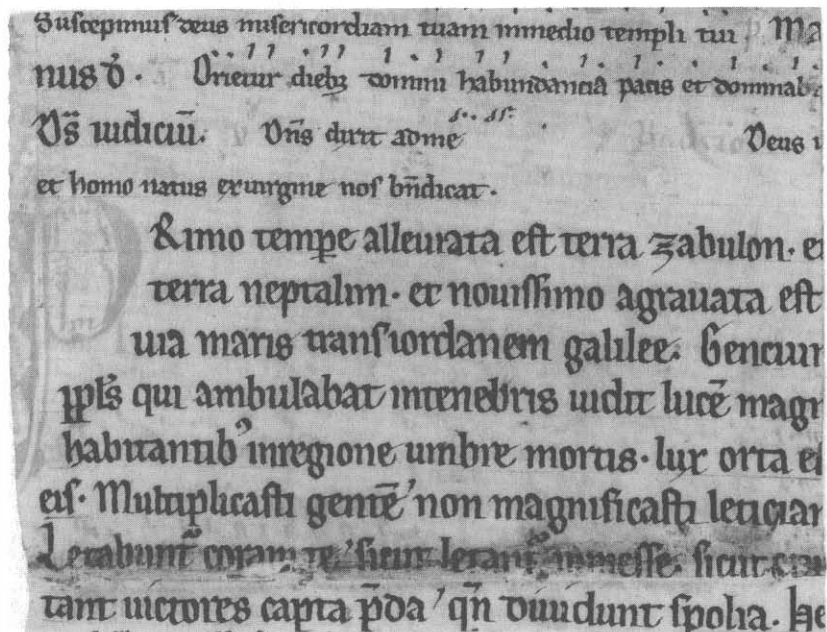 Suscepimus deus misericordiam tuam inmedio templi tui Ma
nus dō. Orietur diebꝫ domini habundanciā pacis et dominab
Ds̄ iudiciū. Dn̄s dixit adme Deus
et homo natus exuirgine nos bn̄dicat.
Rimo tempꝑe alleuiata est terra zabulon. et
terra neptalim. et nouissimo agrauata est
uia maris transiordanem galilee. Gencium
ppl̄s qui ambulabat intenebris uidit lucē magn
habitantibꝰ inregione umbre mortis. lux orta e
eis. Multiplicasti gentē non magnificasti leticiam
Letabunt̄ coram te sicut letant̄ inmesse. sicut
tant uictores capta p̄da qn̄ diuidunt spolia. He